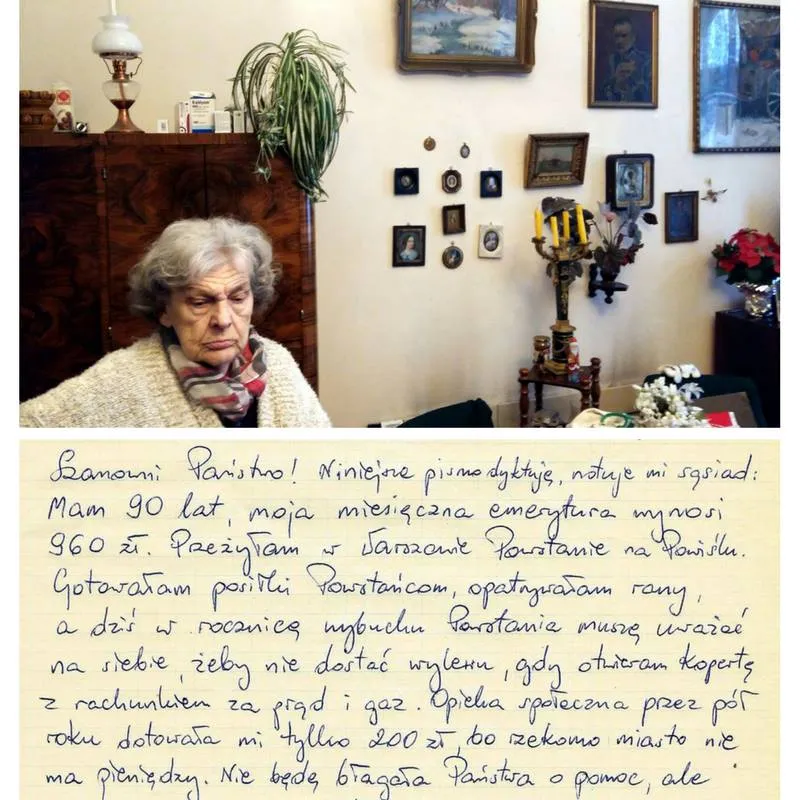 Szanowni Państwo! Niniejsze pismo dyktuję, notuje mi sąsiad:
Mam 90 lat, moja miesięczna emerytura wynosi
960 zł. Przeżyłam w Warszawie Powstanie na Powiślu.
Gotowałam posiłki Powstańcom, opatrywałam rany,
a dziś w rocznicę wybuchu Powstania muszę uważać
na siebie, żeby nie dostać wylewu, gdy otwieram kopertę
z rachunkiem za prąd i gaz. Opieka społeczna przez pół
roku dotowała mi tylko 200 zł, bo rzekomo miasto nie
ma pieniędzy. Nie będę błagała Państwa o pomoc, ale